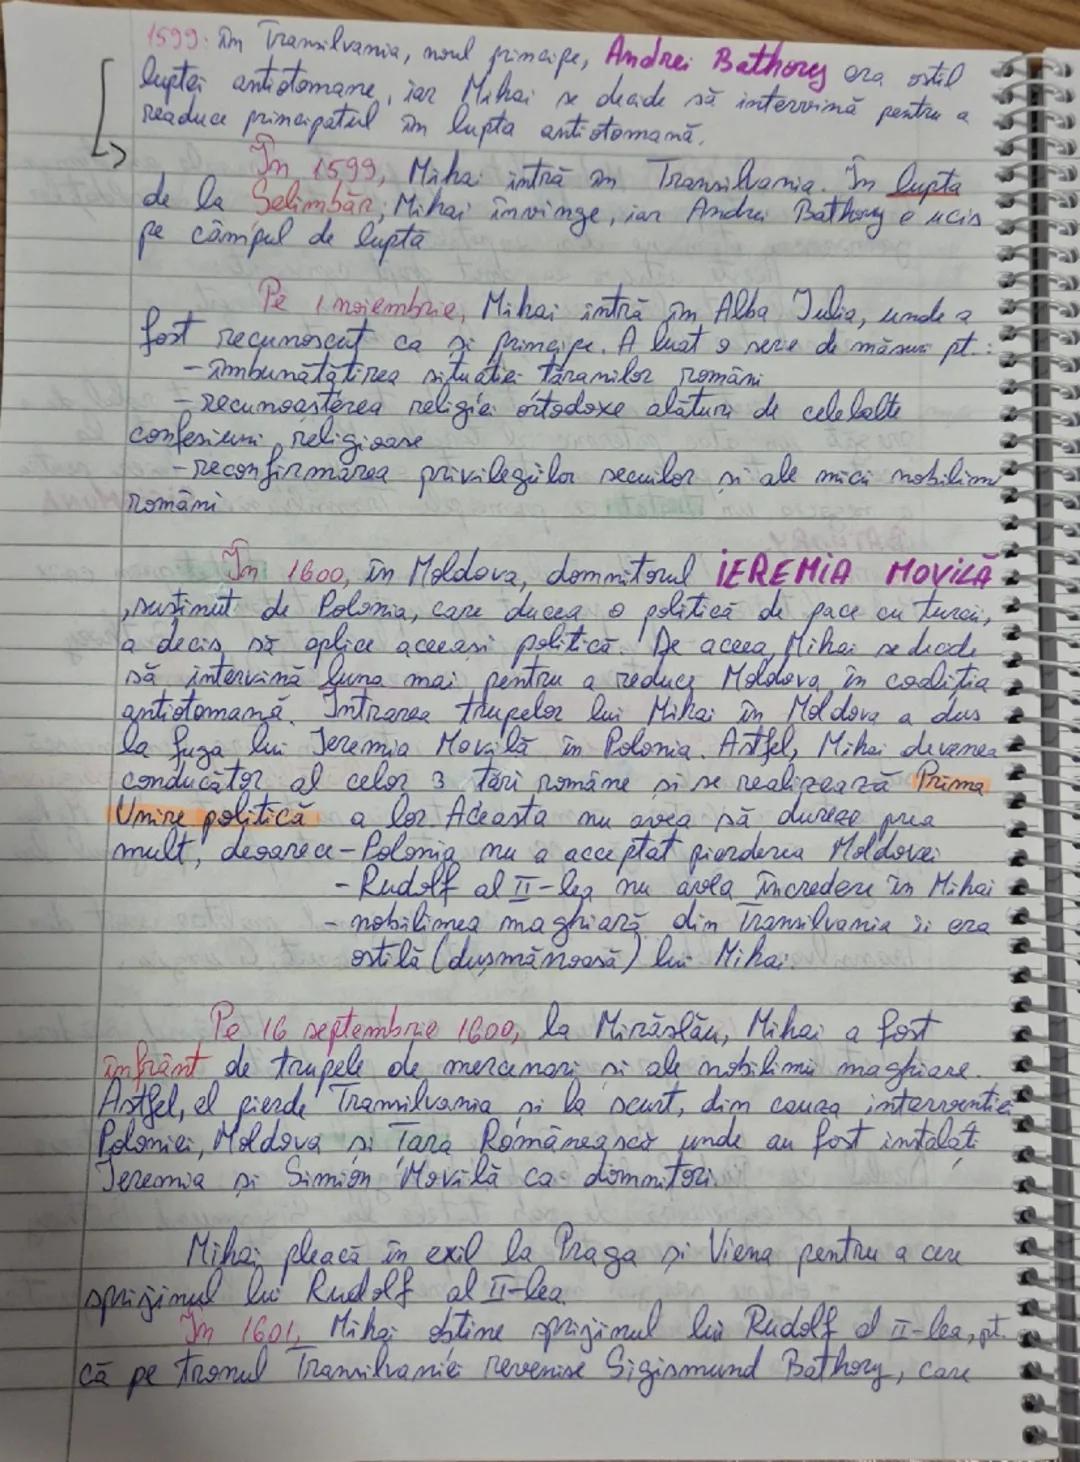 1599: în Transilvania, noul principe, Andrei Bathory era ostil
luptei antiotomane, iar Mihai se decide să intervină pentru a
readuce principatul în lupta antiotomană.
În 1599, Mihai intră în Transilvania. În lupta
de la Șelimbăr, Mihai învinge, iar Andrei Bathory e ucis
pe câmpul de luptă
Pe 1 noiembrie, Mihai intră în Alba Iulia, unde a
fost recunoscut ca și principe. A luat o serie de măsuri pt.:
- îmbunătățirea situației țăranilor români
- recunoașterea religiei ortodoxe alături de celelalte
confesiuni religioase
- reconfirmarea privilegiilor secuilor și ale micii nobilimi
români
În 1600, în Moldova, domnitorul IEREMIA MOVILĂ
, susținut de Polonia, care ducea o politică de pace cu turcii,
a decis să aplice aceeași politică. De aceea, Mihai se decide
să intervină luna mai pentru a reduce Moldova în coaliția
antiotomană. Intrarea trupelor lui Mihai în Moldova a dus
la fuga lui Ieremia Movilă în Polonia. Astfel, Mihai devenea
conducător al celor 3 țări române și se realizează Prima
Unire politică a lor. Aceasta nu avea să dureze prea
mult, deoarece - Polonia nu a acceptat pierderea Moldovei
- Rudolf al II-lea nu avea încredere în Mihai
- nobilimea maghiară din Transilvania îi era
ostilă (dușmănoasă) lui Mihai.
Pe 16 septembrie 1600, la Mirăslău, Mihai a fost
înfrânt de trupele de mercenari și ale nobilimii maghiare.
Astfel, el pierde Transilvania și la scurt, din cauza intervenției
Poloniei, Moldova și Țara Românească unde au fost instalați
Ieremia și Simion Movilă ca domnitori.
Mihai pleacă în exil la Praga și Viena pentru a cere
sprijinul lui Rudolf al II-lea
În 1601, Mihai obține sprijinul lui Rudolf al II-lea, pt.
că pe tronul Transilvaniei revenise Sigismund Bathory, care